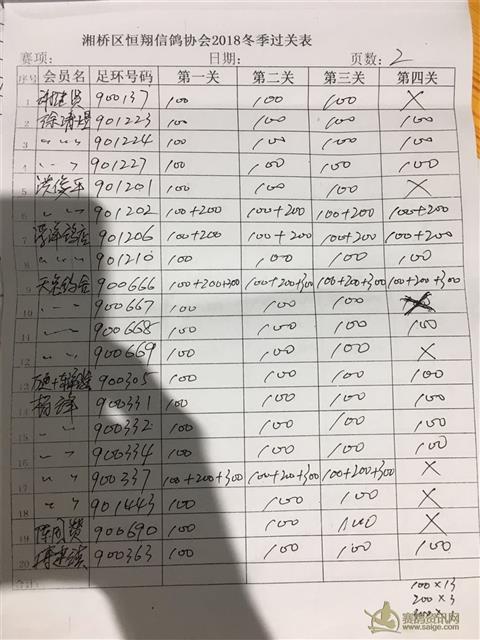 湘桥区恒翔信鸽协会2018冬季过关表
赛项: 日期: 页数: 2
序号 会员名 足环号码 第一关 第二关 第三关 第四关
1 900137 100 100 100 X
2 901223 100 100 100 100
3 〃 〃 901224 100 100 100 100
4 〃 〃 901227 100 100 100 100
5 洪俊平 901201 100 100 100 X
6 〃 〃 901202 100+200 100+200 100+200 100+200
7 901206 100+200 100+200 100+200 100+200
8 〃 〃 901210 100 100 100 100
9 900666 100+200+300 100+200+300 100+200+300
10 〃 〃 900667 100 100 100
11 〃 〃 900668 100 100 100 100
12 〃 〃 900669 100 100 100 X
13 900305 100 100 100 100
14 杨锋 900331 100 100 100 100
15 〃 〃 900332 100 100 100 100
16 〃 〃 900334 100 100 100 100
17 〃 〃 900337 100+200+300 100+200+300 100+200+300 X
18 〃 〃 901443 100 100 100 X
19 900690 100 100 100 X
20 900363 100 100 100 100
合计:
100×13
200×3
赛鸽资讯网
www.saige.com